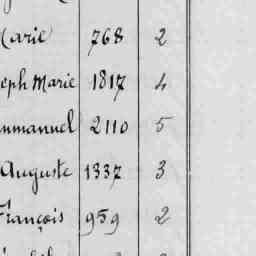 Marie 768 2
eph Marie 1817 4
mmanuel 2110 5
Auguste 1337 3
François 959 2